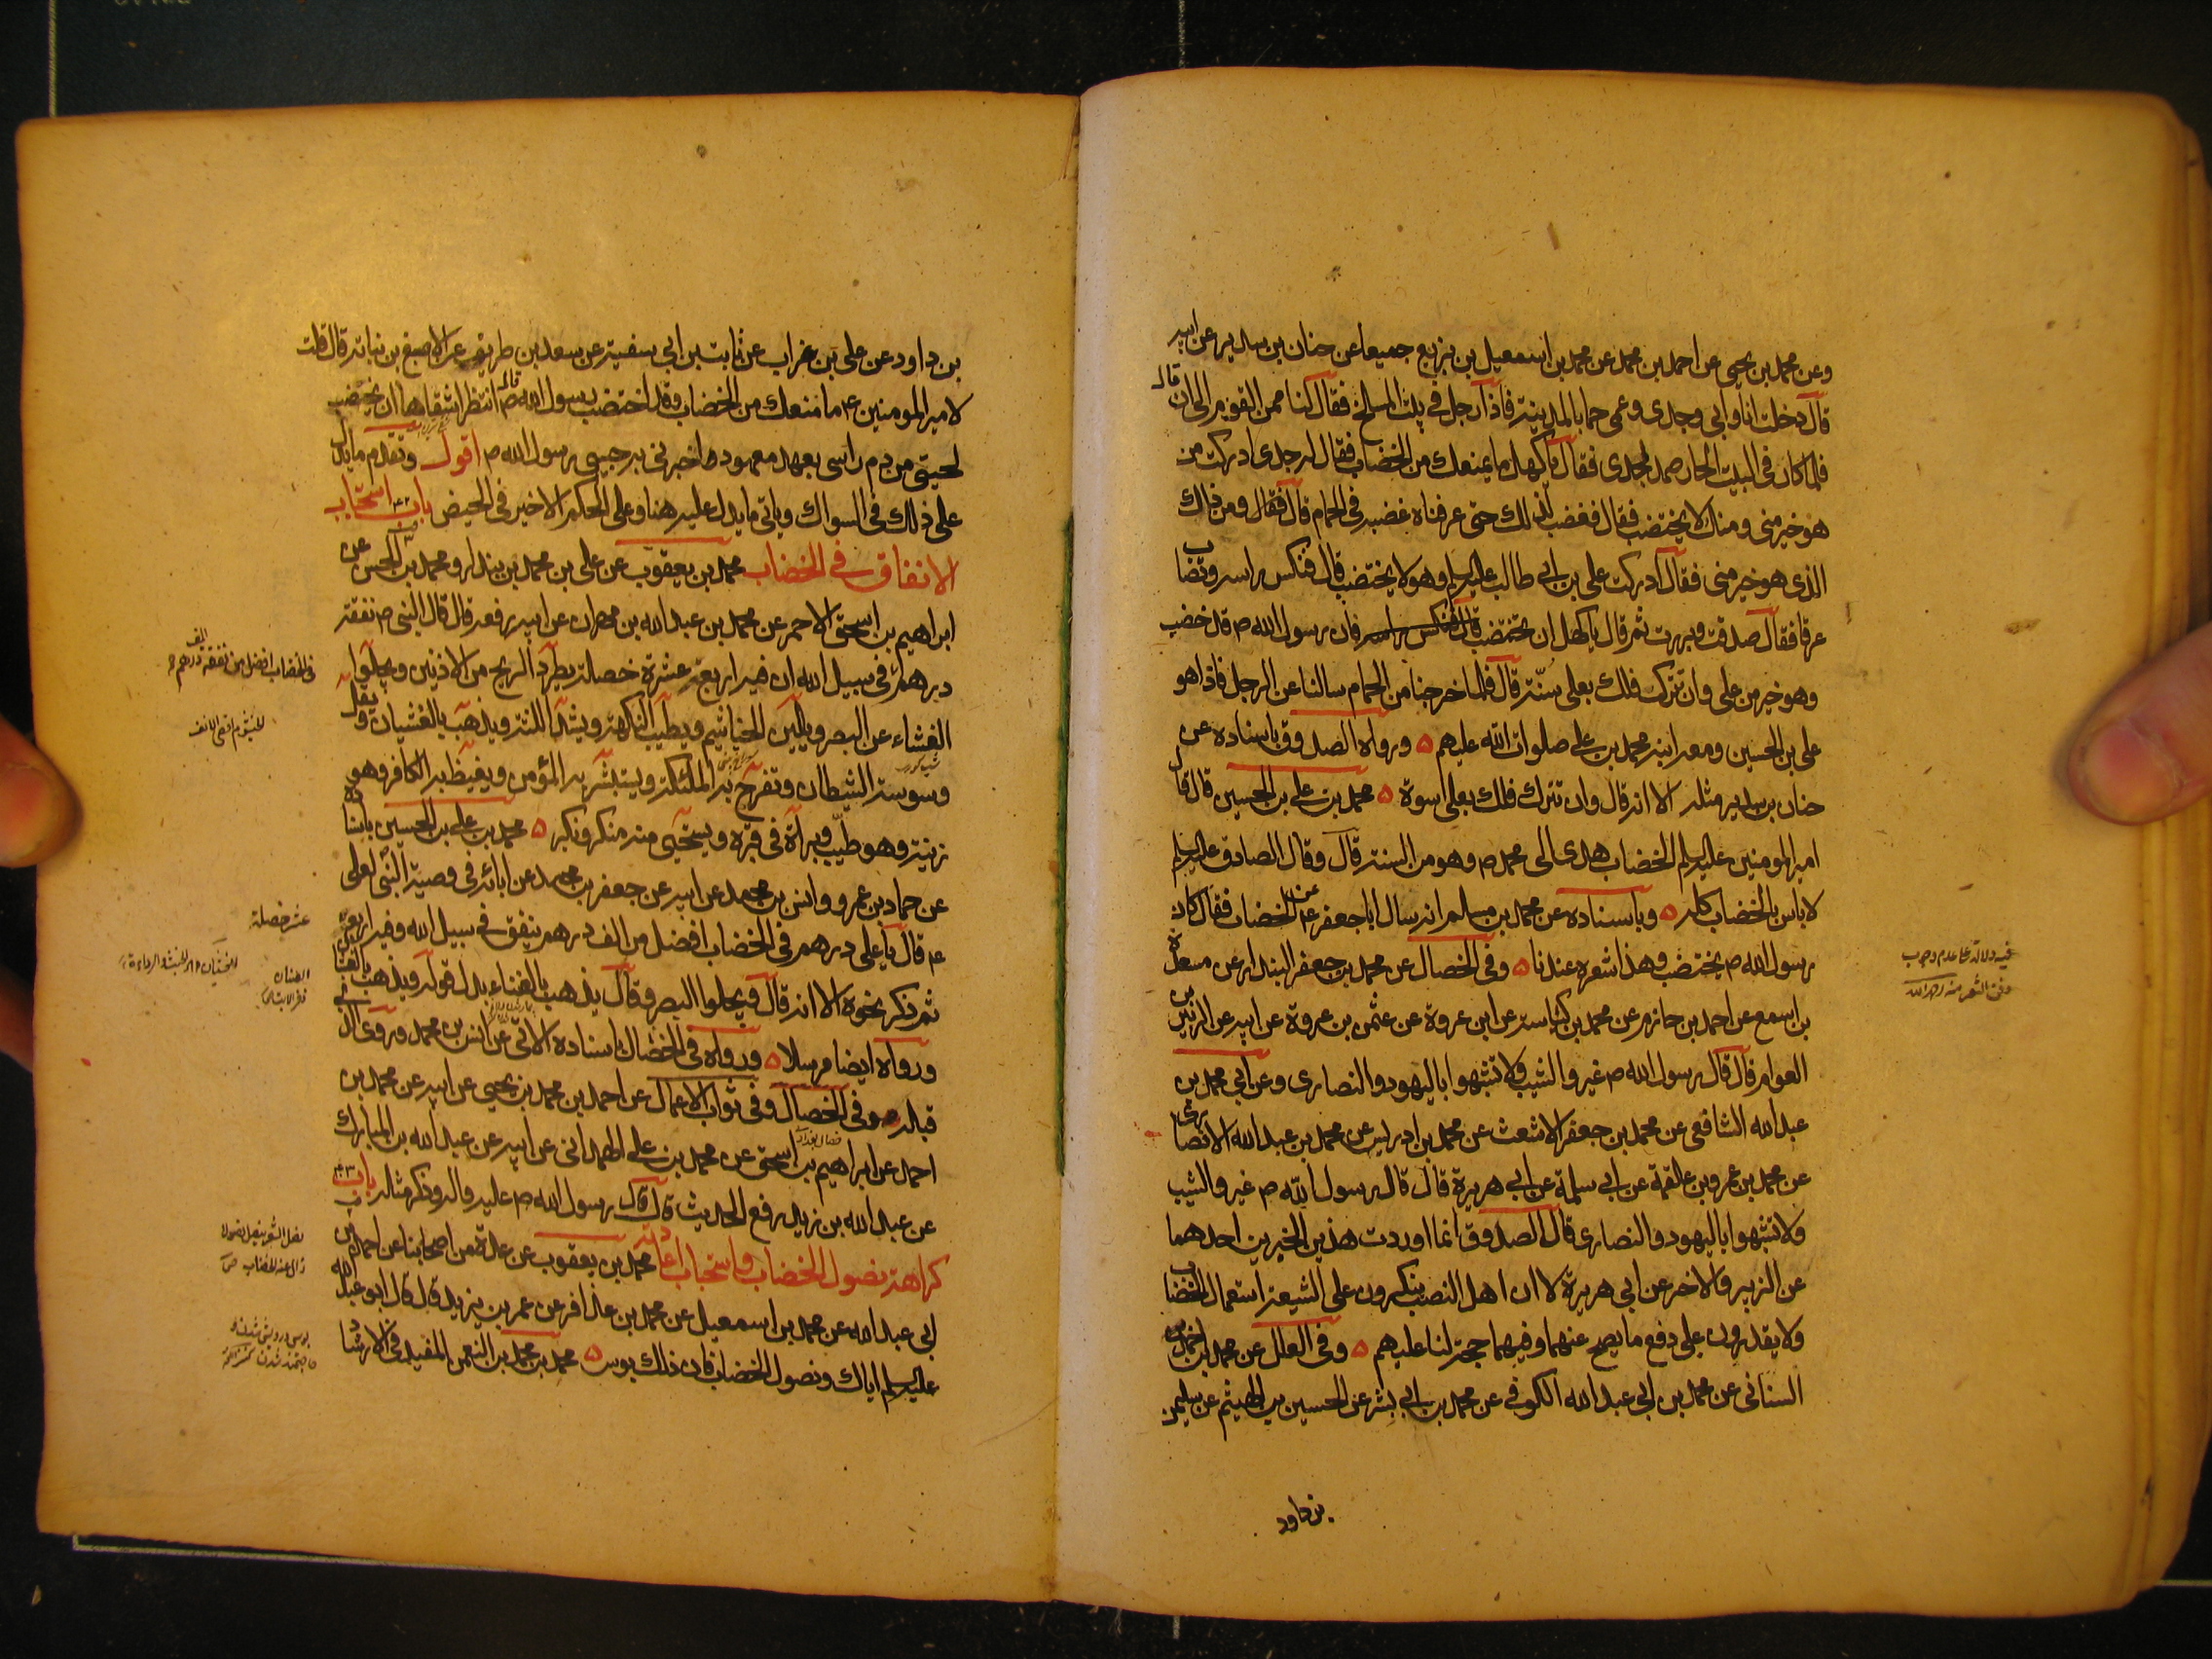 وعن محمد بن يحيى عن احمد بن محمد عن محمد بن اسمعيل بن بزيع جميعا عن حنان بن سدير عن ابيه
قال دخلت انا وابي وجدى وعمى حماما بالمدينة فاذا رجل في بيت المسلخ فقال لنا ممن القوم الى ان قال
فلما كان في البيت الحار صمد لجدى فقال يا كهل ما يمنعك من الخضاب فقال له جدى ادركت من
هو خير منى ومنك لا يختضب فقال فغضب لذلك حتى عرفنا غضبه في الحمام قال فقال ومن ذاك
الذى هو خير منى فقال ادركت على بن ابي طالب عليه السلم وهو لا يختضب قال فنكس راسه وتصاب
عرقا فقال صدقت وبررت ثم قال يا كهل ان تختضب فان رسول الله ص قد خضب
وهو خير من على وان تترك فلك بعلى سنة قال فلما خرجنا من الحمام سالنا عن الرجل فاذا هو
على بن الحسين ومعه ابنه محمد بن على صلوات الله عليهم ورواه الصدوق باسناده عن
حنان بن سدير مثله الا انه قال وان تترك فلك بعلى اسوة محمد بن على بن الحسين قال قال
امير المومنين عليه السلم الخضاب هدى الى محمد ص وهو من السنة قال وقال الصادق عليه السلم
لا باس بالخضاب كله وباسناده عن محمد بن مسلم انه سال ابا جعفر ع عن الخضاب فقال كان
رسول الله ص يختضب وهذا شعره عندنا وفي الخصال عن محمد بن جعفر البندار عن مسعدة
بن اسمع عن احمد بن حازم عن محمد بن كناسة عن ابن عروة عن عثمن بن عروة عن ابيه عن الزبير بن
العوام قال قال رسول الله ص غيروا الشيب ولا تشبهوا باليهود والنصارى وعن ابي محمد بن
عبد الله الشافعى عن محمد بن جعفر الاشعث عن محمد بن ادريس عن محمد بن عبد الله الانصارى
عن محمد بن عمرو بن علقمة عن ابي سلمة عن ابي هريرة قال قال رسول الله ص غيروا الشيب
ولا تشبهوا باليهود والنصارى قال الصدوق انما اوردت هذين الخبرين احدهما
عن الزبير والاخر عن ابي هريرة لان اهل النصب ينكرون على الشيعة استعمال الخضاب
ولا يقدرون على دفع ما يصح عنهما وفيهما حجة لنا عليهم وفي العلل عن محمد بن احمد
السنانى عن محمد بن ابي عبد الله الكوفي عن محمد بن ابي بشر عن الحسين بن الهيثم عن سليمن
بن داود
فيه دلالة على عدم وجوب
دفن الشعر منه رحمه الله
بن داود عن على بن غراب عن ثابت بن ابي صفية عن سعد بن طريف عن الاصبغ بن نباتة قال قلت
لامير المومنين ع ما منعك من الخضاب وقد اختضب رسول الله ص قال انتظر اشقاها ان يختضب
لحيتى من دم راسى بعهد معهود اخبرنى به حبيبى رسول الله ص اقول وتقدم ما يدل
على ذلك في السواك وياتى ما يدل عليه هنا وعلى الحكم الاخير في الحيض باب استحباب
الانفاق في الخضاب محمد بن يعقوب عن على بن محمد بن بندار ومحمد بن الحسن عن
ابراهيم بن اسحق الاحمر عن محمد بن عبد الله بن مهران عن ابيه رفعه قال قال النبى ص نفقة
درهم في سبيل الله ان فيه اربع عشرة خصلة يطرد الريح من الاذنين ويجلو
الغشاء عن البصر ويلين الخياشيم ويطيب النكهة ويشد اللثة ويذهب بالغشيان ويقل
وسوسة الشيطان وتفرح به الملئكة ويستبشر به المؤمن ويغيظ به الكافر وهو
زينة وهو طيب وبراءة في قبره ويستحيى منه منكر ونكير محمد بن على بن الحسين باسناده
عن حماد بن عمرو وانس بن محمد عن ابيه عن جعفر بن محمد عن ابائه في وصية النبى لعلى
ع قال يا على درهم في الخضاب افضل من الف درهم ينفق في سبيل الله وفيه اربع
ثم ذكر نحوه الا انه قال ويجلوا البصر وقال يذهب بالغشاء بدل قوله ويذهب
ورواه ايضا مرسلا ورواه في الخصال باسناده الاتى عن انس بن محمد وروى الذى
قبله وفي الخصال وفي ثواب الاعمال عن احمد بن محمد بن يحيى عن ابيه عن محمد بن
احمد عن ابراهيم بن اسحق عن محمد بن على الهمدانى عن ابيه عن عبد الله بن المبارك
عن عبد الله بن زيد رفع الحديث قال قال رسول الله ص عليه واله وذكر مثله باب
كراهة نصول الخضاب واستحباب اعادته محمد بن يعقوب عن عدة من اصحابنا عن احمد بن
ابي عبد الله عن محمد بن اسمعيل عن محمد بن عذافر عن عمر بن يزيد قال قال ابو عبد الله
عليه السلم اياك ونصول الخضاب فان ذلك بوس محمد بن محمد بن النعمن المفيد في الارشاد
في الخضاب افضل من نفقة درهم
الخيشوم اقصى الانف
عشر خصلة
زال عنه الخضاب